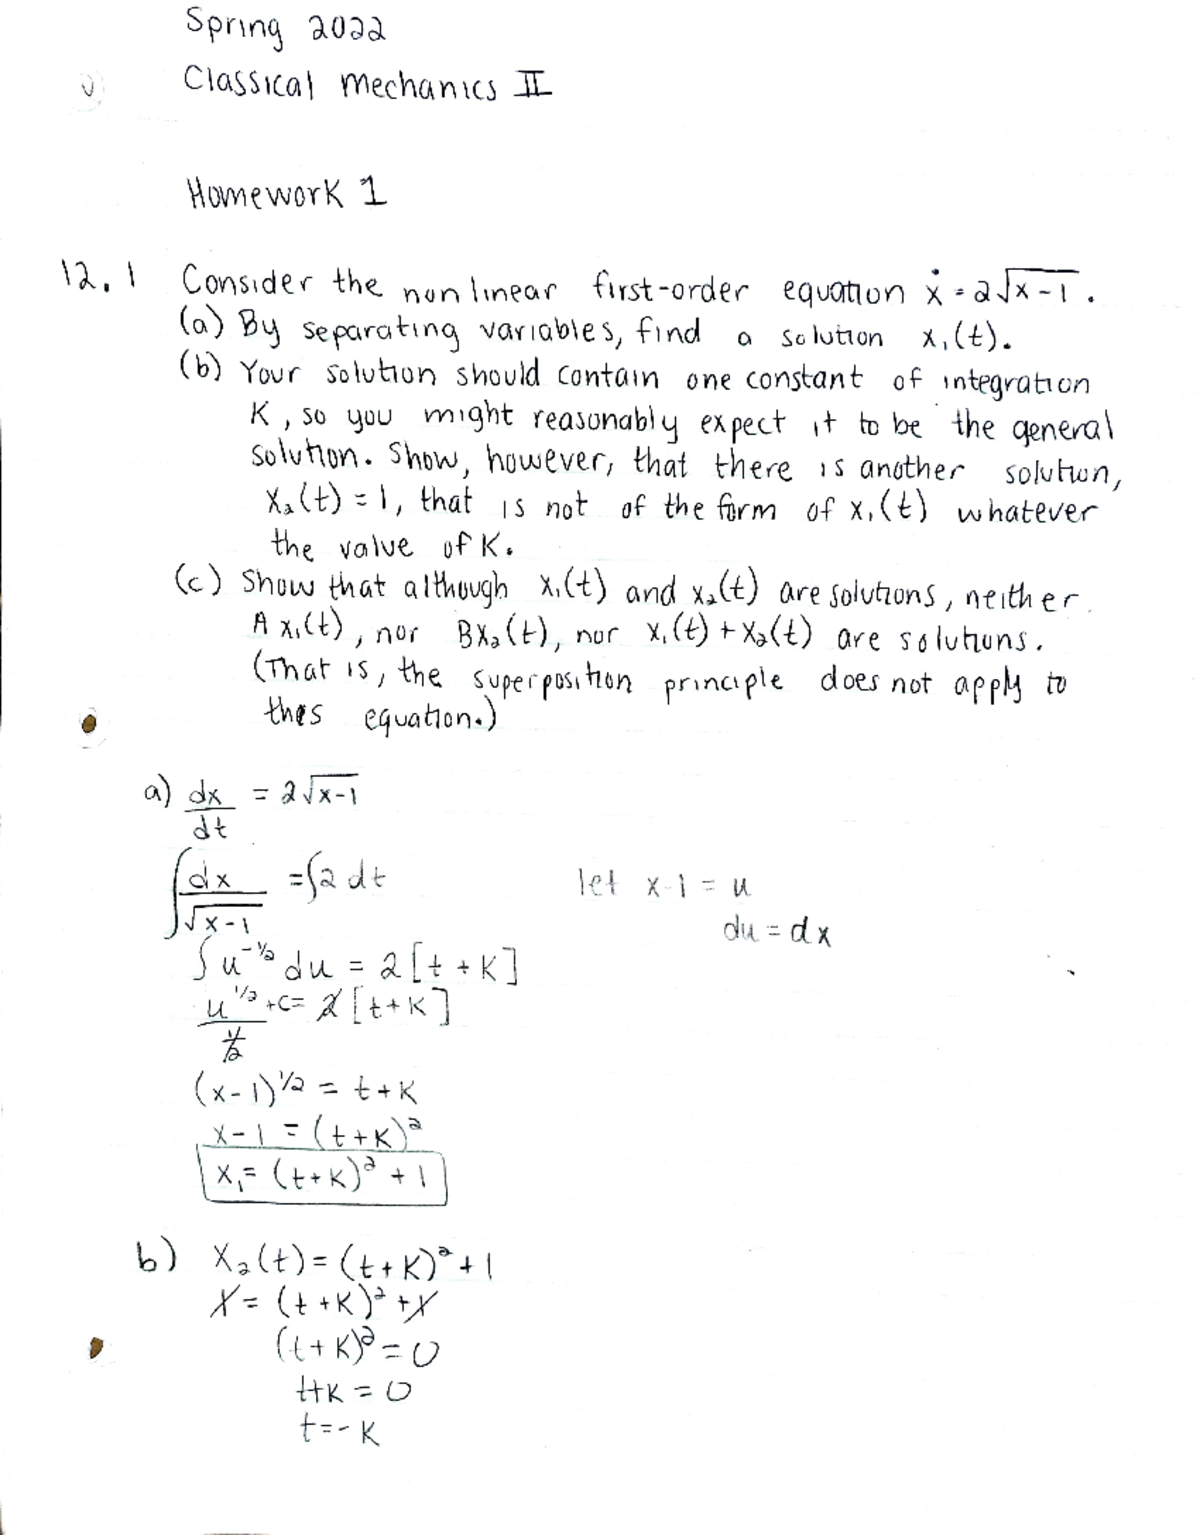 Spring 2022
Classical Mechanics II
Homework 1
12.1 Consider the nonlinear first-order equation ẋ = 2√(x-1).
(a) By separating variables, find a solution x₁(t).
(b) Your solution should contain one constant of integration
K, so you might reasonably expect it to be the general
solution. Show, however, that there is another solution,
X₂(t) = 1, that is not of the form of x₁(t) whatever
the value of K.
(c) Show that although x₁(t) and x₂(t) are solutions, neither
A x₁(t), nor Bx₂(t), nor x₁(t) + x₂(t) are solutions.
(That is, the superposition principle does not apply to
this equation.)
a) dx/dt = 2√(x-1)
∫ dx/√(x-1) = ∫2 dt let x-1 = u
du = dx
∫u^(-1/2) du = 2[t + K]
u^(1/2)/(1/2) + C = 2[t + K]
(x-1)^(1/2) = t + K
x-1 = (t + K)²
x₁ = (t + K)² + 1
b) X₂(t) = (t + K)² + 1
1 = (t + K)² + 1
(t + K)² = 0
t+K = 0
t = -K